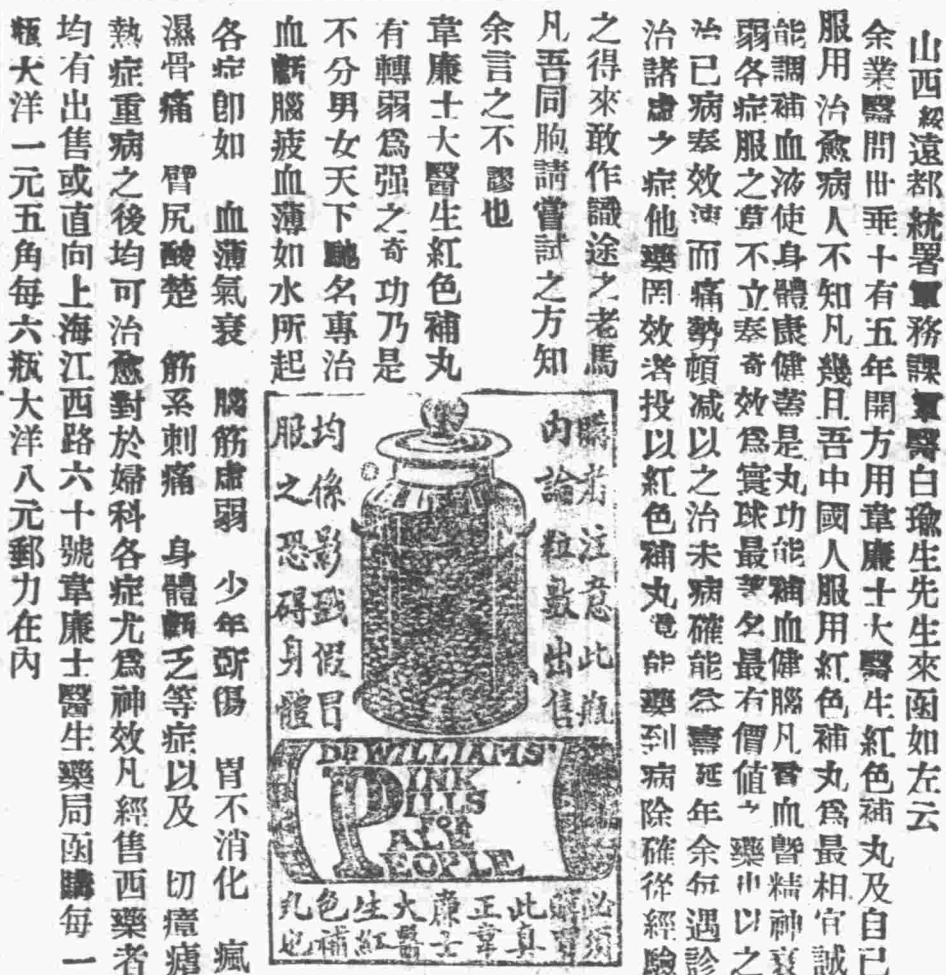 山西綏遠都統署軍務課軍醫白瑜生先生來函如左云
余業醫問世垂十有五年開方用韋廉士大醫生紅色補丸及自己
服用治愈病人不知凡幾且吾中國人服用紅色補丸爲最相宜誠
能調補血液使身體康健蓋是丸功能補血健腦凡腎血暨精神衰
弱各症服之莫不立奏奇效爲寰球最著名最有價值之藥也以之
治已病奏效速而痛勢頓减以之治未病確能益壽延年余每遇診
治諸虛之症他藥罔效者投以紅色補丸竟能藥到病除確從經驗
之得來敢作識途之老馬
凡吾同胞請嘗試之方知
余言之不謬也
韋廉士大醫生紅色補丸
有轉弱爲强之奇功乃是
不分男女天下馳名專治
血虧腦疲血薄如水所起
各症卽如 血薄氣衰 腦筋虛弱 少年斲傷 胃不消化 瘋
濕骨痛 臂尻酸楚 筋系刺痛 身體虧乏等症以及 切瘴瘧
熱症重病之後均可治愈對於婦科各症尤爲神效凡經售西藥者
均有出售或直向上海江西路六十號韋廉士醫生藥局函購每一
瓶大洋一元五角每六瓶大洋八元郵力在內
購者注意此瓶
內論粒數出售
均係影戤假冒
服之恐碍身體
DR WILLIAMS'
PINK
PILLS
FOR
PALE
PEOPLE
必須
此眞
正韋
廉士
大醫
生紅
色補
丸也